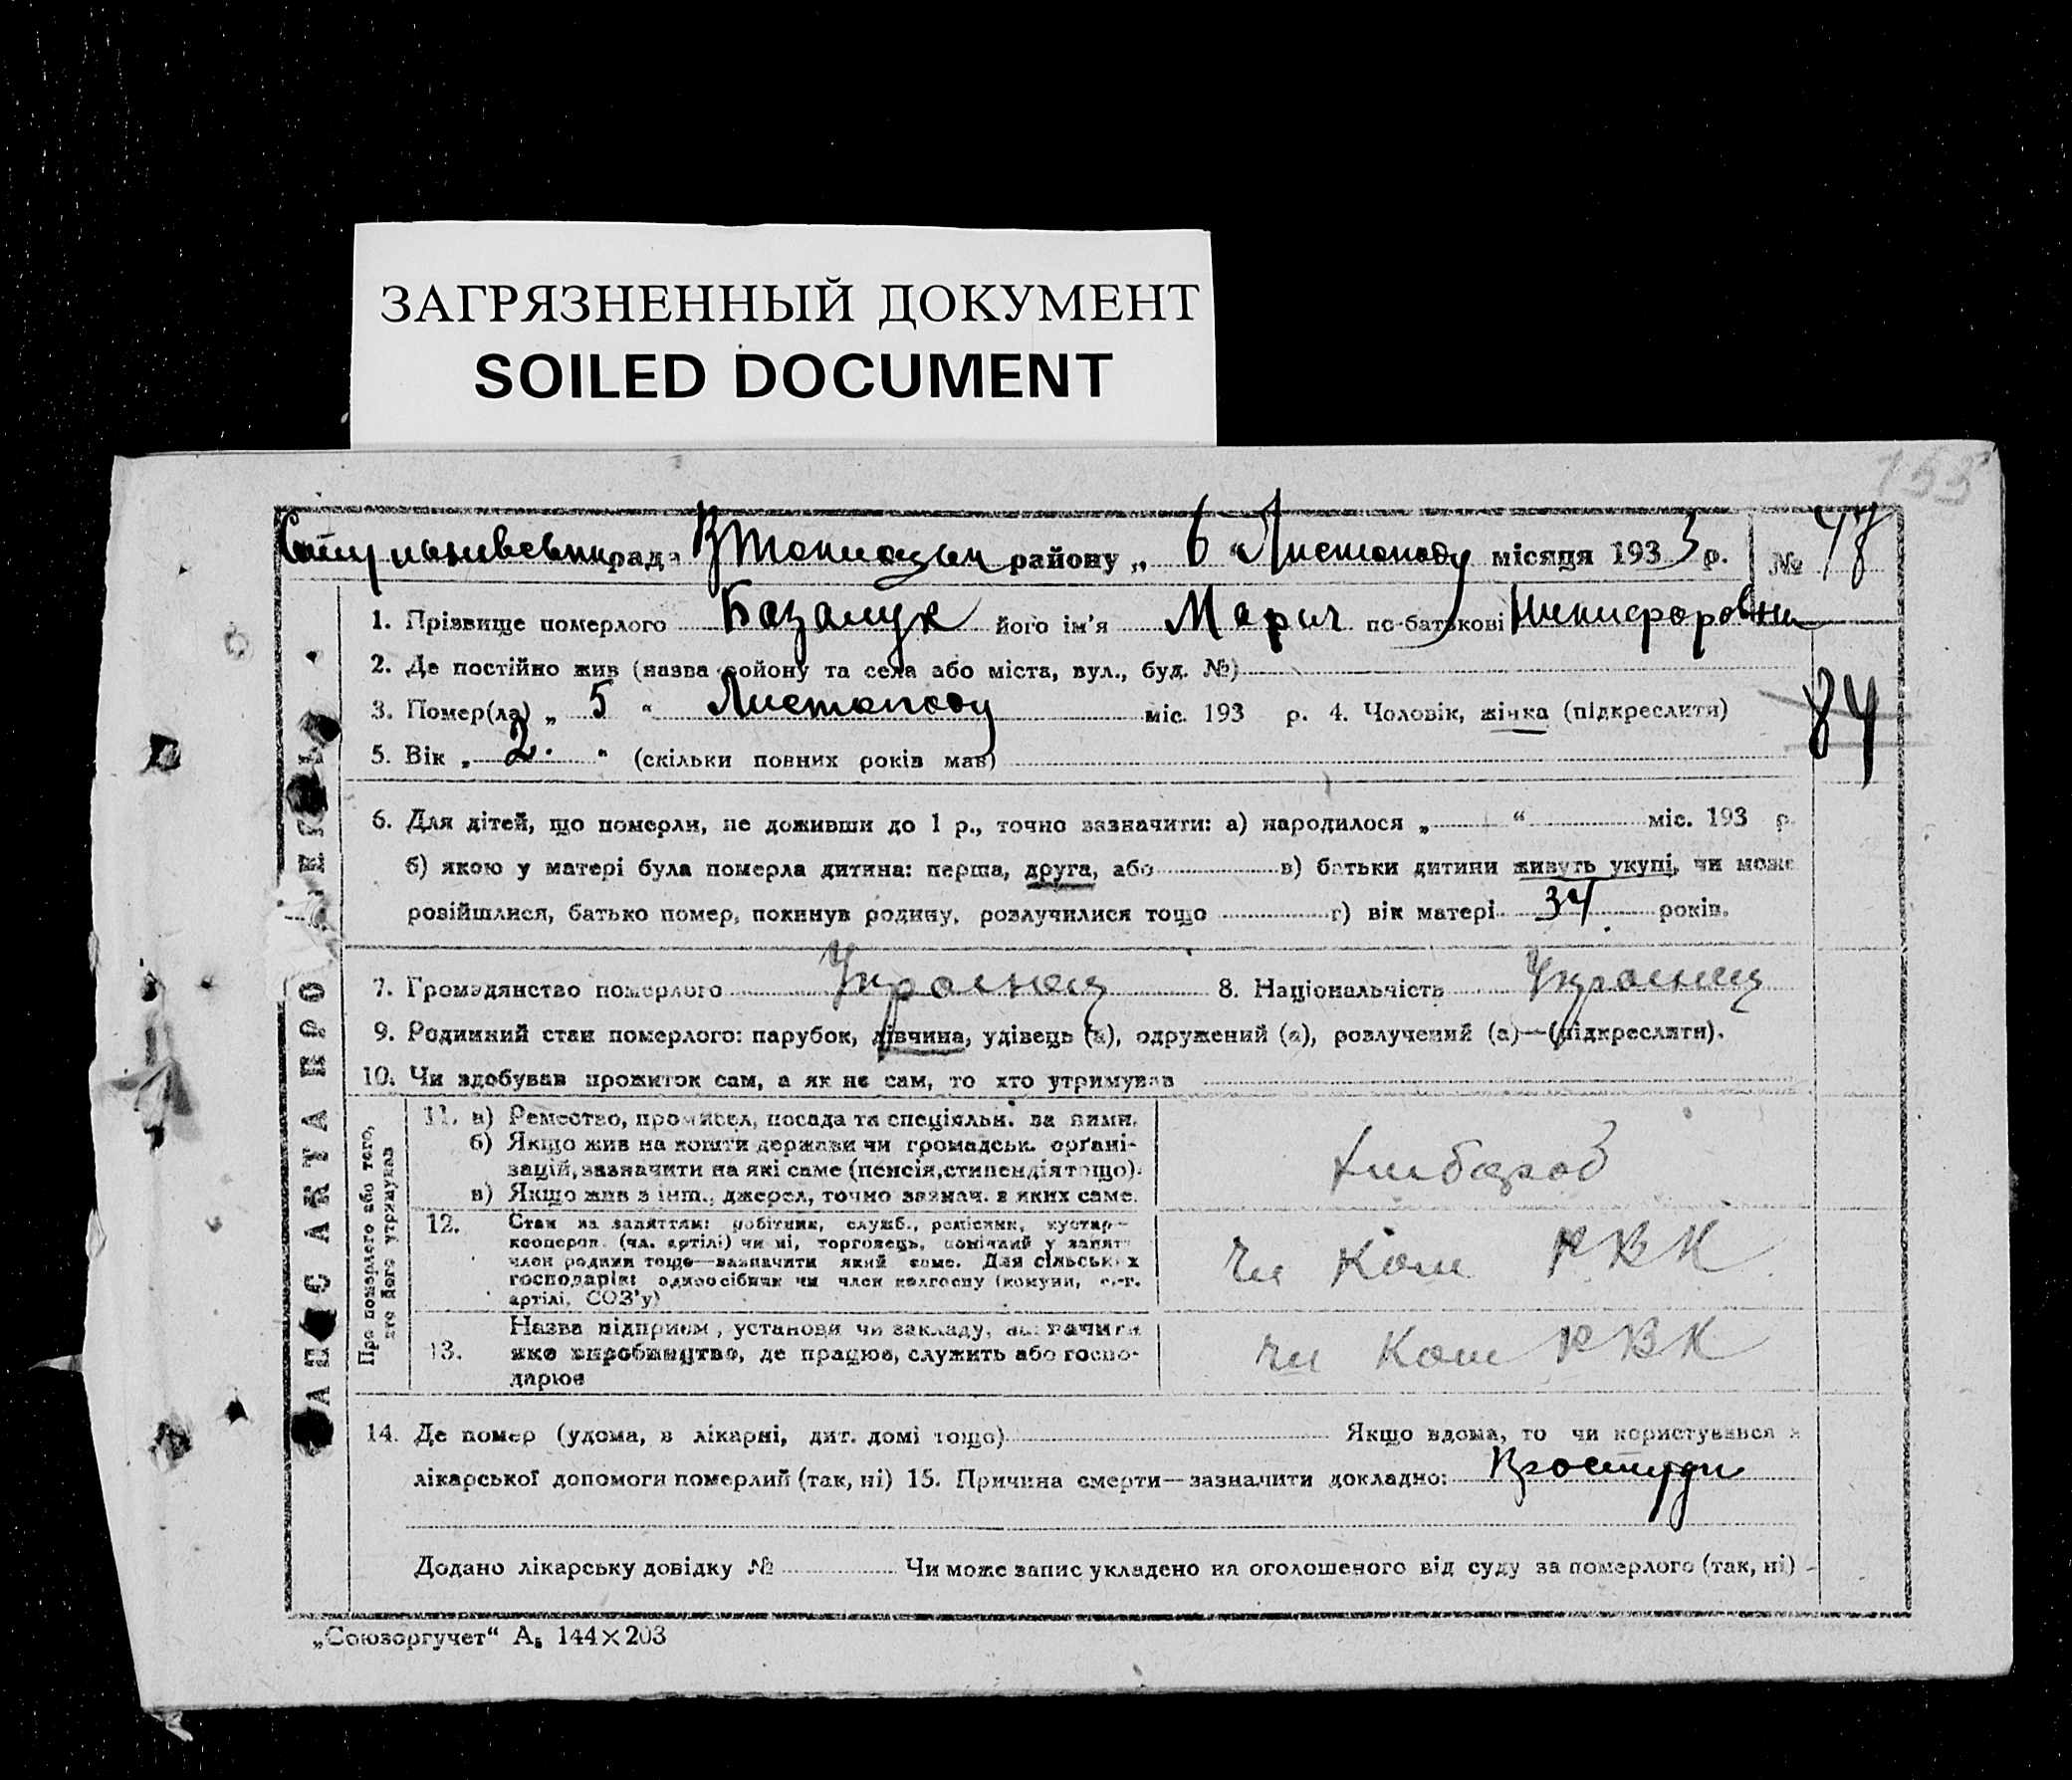 ЗАГРЯЗНЕННЫЙ ДОКУМЕНТ
SOILED DOCUMENT
155
рада району „ 6 “ Листопаду місяця 1933 р. № 48
1. Прізвище померлого Базалук його ім'я Мария по-батькові Никифоровна
2. Де постійно жив (назва район у та села або міста, вул., буд. №)
3. Помер(ла) „ 5 “ Листопаду міс. 193 р. 4. Чоловік, жінка (підкреслити)
84
5. Вік „ 2. “ (скільки повних років мав)
6. Для дітей, що померли, не доживши до 1 р., точно зазначити: а) народилося „ “ міс. 193 р.
б) якою у матері була померла дитина: перша, друга, або в) батьки дитини живуть укупі, чи може
розійшлися, батько помер, покинув родину, розлучилися тощо г) вік матері 34 років.
7. Громадянство померлого Украинец 8. Національність Украинец
9. Родинний стан померлого: парубок, дівчина, удівець (а), одружений (а), розлучений (а)—(підкреслити).
10. Чи здобував прожиток сам, а як не сам, то хто утримував
ЗАПИС АКТА ПРО СМЕРТЬ
Про померлого або того,
хто його утримував
11. а) Ремество, промисел, посада та спеціяльн. за ними.
б) Якщо жив на кошти держави чи громадськ. орґані-
зацій, зазначити на які саме (пенсія, стипендія тощо).
в) Якщо жив з інш., джерел, точно зазнач. з яких саме.
12. Стан за заняттям: робітник, служб., ремісник, кустар—
кооперов. (чл. артілі) чи ні, торговець, помічний у занятт
член родини тощо—зазначити який саме. Для сільських
господарів: одноосібник чи член колгоспу (комуни, с.-г.
артілі, СОЗ'у)
РВК
13. Назва підприєм., установи чи закладу, зазначити
яке виробництво, де працює, служить або госпо-
дарює
РВК
14. Де помер (удома, в лікарні, дит. домі тощо) Якщо вдома, то чи користувався з
лікарської допомоги померлий (так, ні) 15. Причина смерти—зазначити докладно: Простуди
Додано лікарську довідку № Чи може запис укладено на оголошеного від суду за померлого (так, ні)
„Союзоргучет“ А₅ 144×203